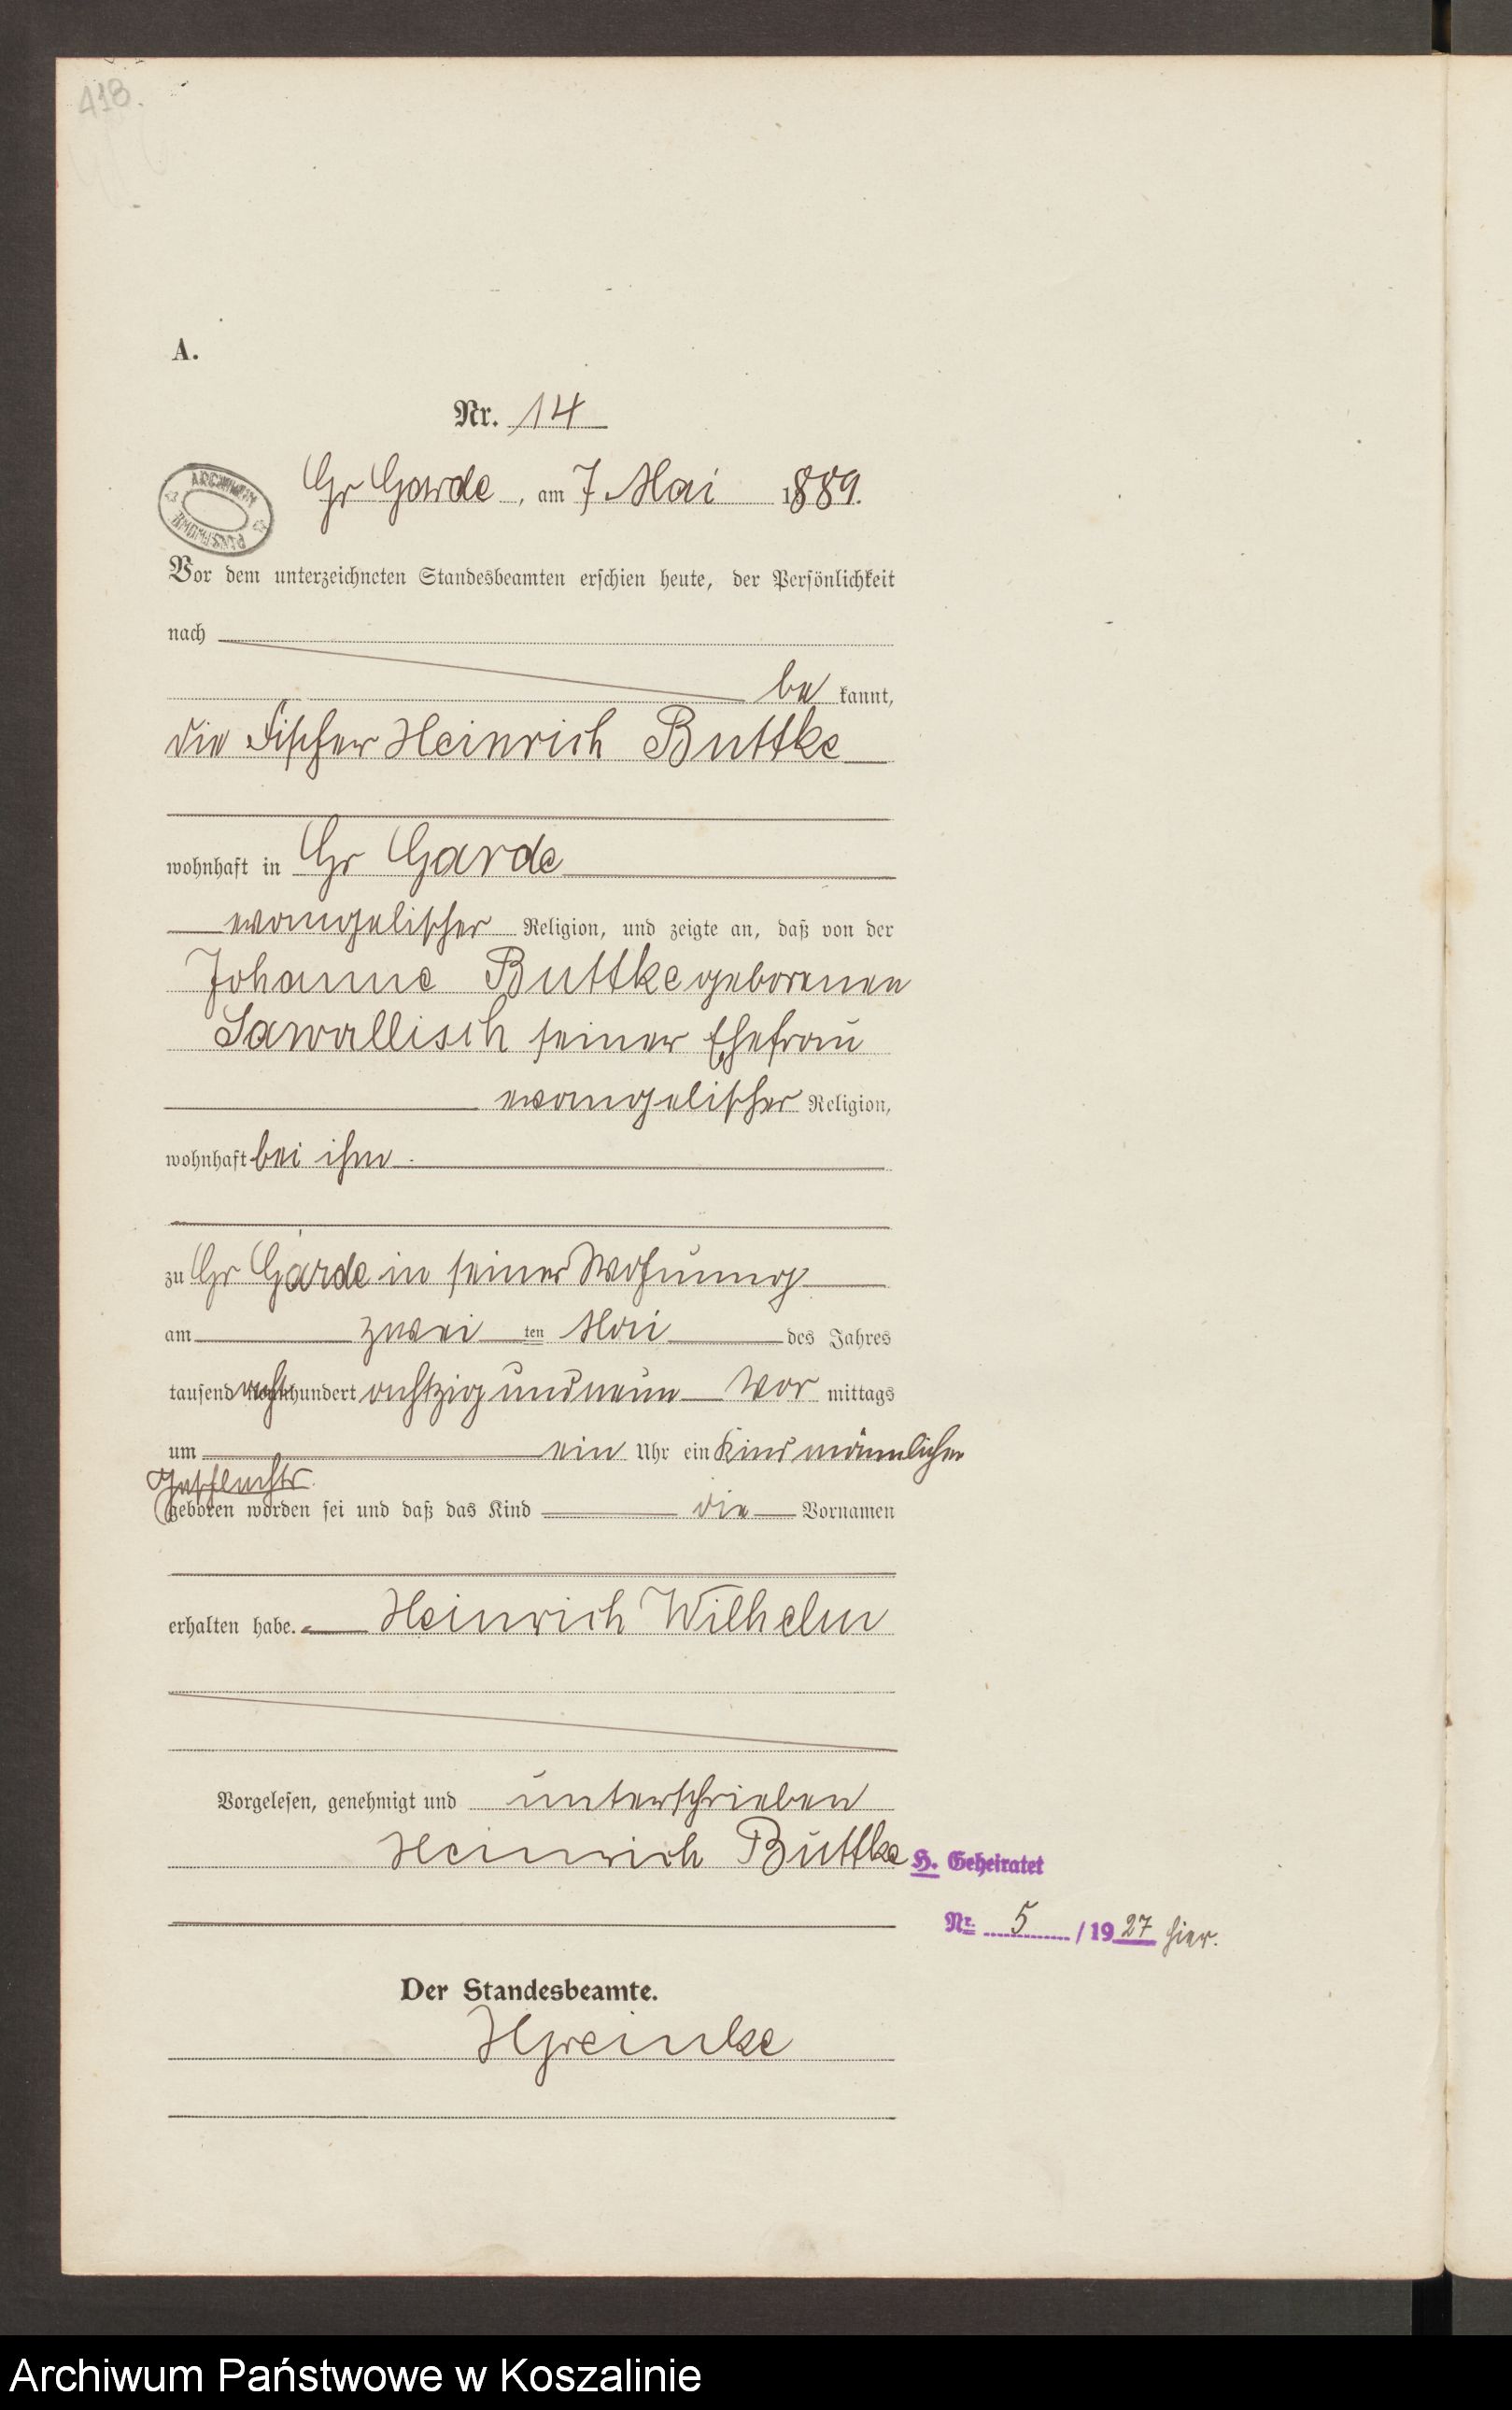 418.
A.
Nr. 14
ARCHIWUM PAŃSTWOWE
Gr Garde, am 7 Mai 1889.
Vor dem unterzeichneten Standesbeamten erschien heute, der Persönlichkeit
nach
be kannt,
die Fischer Heinrich Buttke
wohnhaft in Gr Garde
evangelischer Religion, und zeigte an, daß von der
Johanne Buttke geborenen
Sawallisch seiner Ehefrau
evangelischer Religion,
wohnhaft bei ihm.
zu Gr Garde in seiner Wohnung
am zwei ten Mai des Jahres
tausend acht hundert achtzig und neun Vor mittags
um ein Uhr ein Kind männlichen
Geschlechts
geboren worden sei und daß das Kind die Vornamen
erhalten habe. Heinrich Wilhelm
Vorgelesen, genehmigt und unterschrieben
Heinrich Buttke
H. Geheiratet
Nr. 5 / 1927 hier.
Der Standesbeamte.
Archiwum Państwowe w Koszalinie